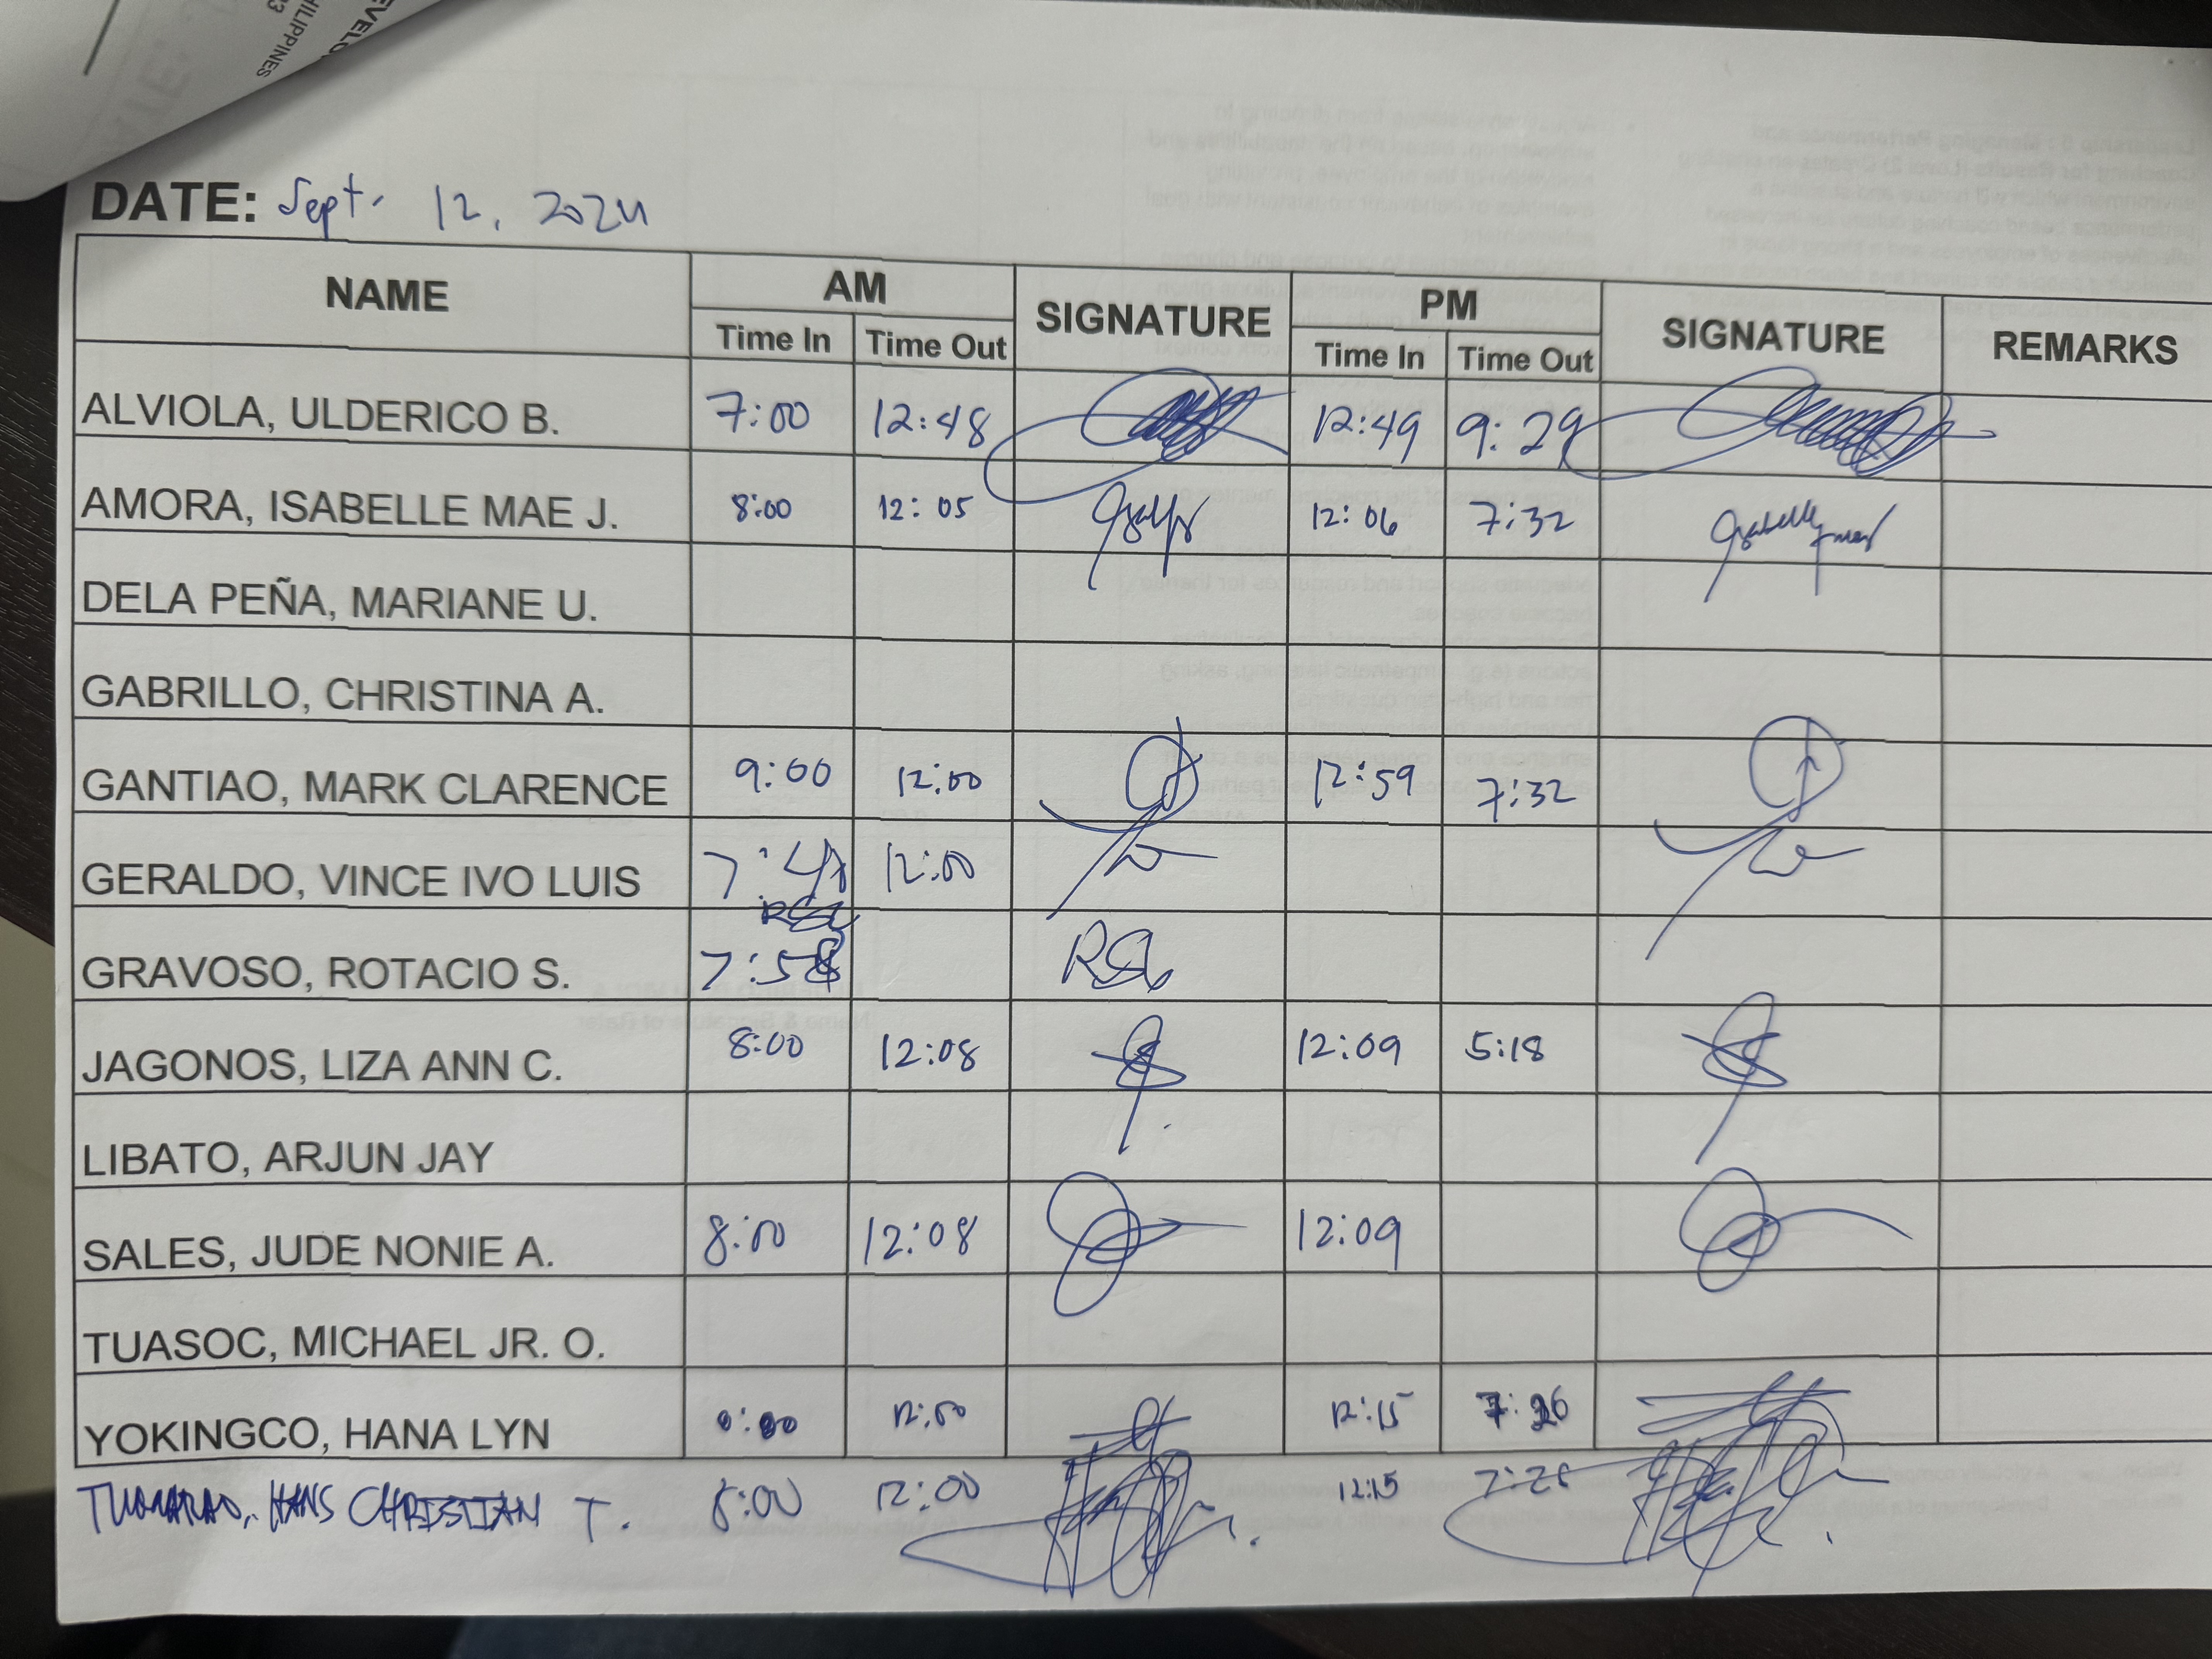 EVELO
HILIPPINES
DATE: Sept. 12, 2024
NAME AM SIGNATURE PM SIGNATURE REMARKS
Time In Time Out Time In Time Out
ALVIOLA, ULDERICO B. 7:00 12:48 12:49 9:29
AMORA, ISABELLE MAE J. 8:00 12:05 12:06 7:32
DELA PEÑA, MARIANE U.
GABRILLO, CHRISTINA A.
GANTIAO, MARK CLARENCE 9:00 12:00 12:59 7:32
GERALDO, VINCE IVO LUIS 12:00
GRAVOSO, ROTACIO S. 7:58
JAGONOS, LIZA ANN C. 8:00 12:08 12:09 5:18
LIBATO, ARJUN JAY
SALES, JUDE NONIE A. 8:00 12:08 12:09
TUASOC, MICHAEL JR. O.
YOKINGCO, HANA LYN 12:00 12:15 7:26
HANS CHRISTIAN T. 8:00 12:00 12:15 7:26